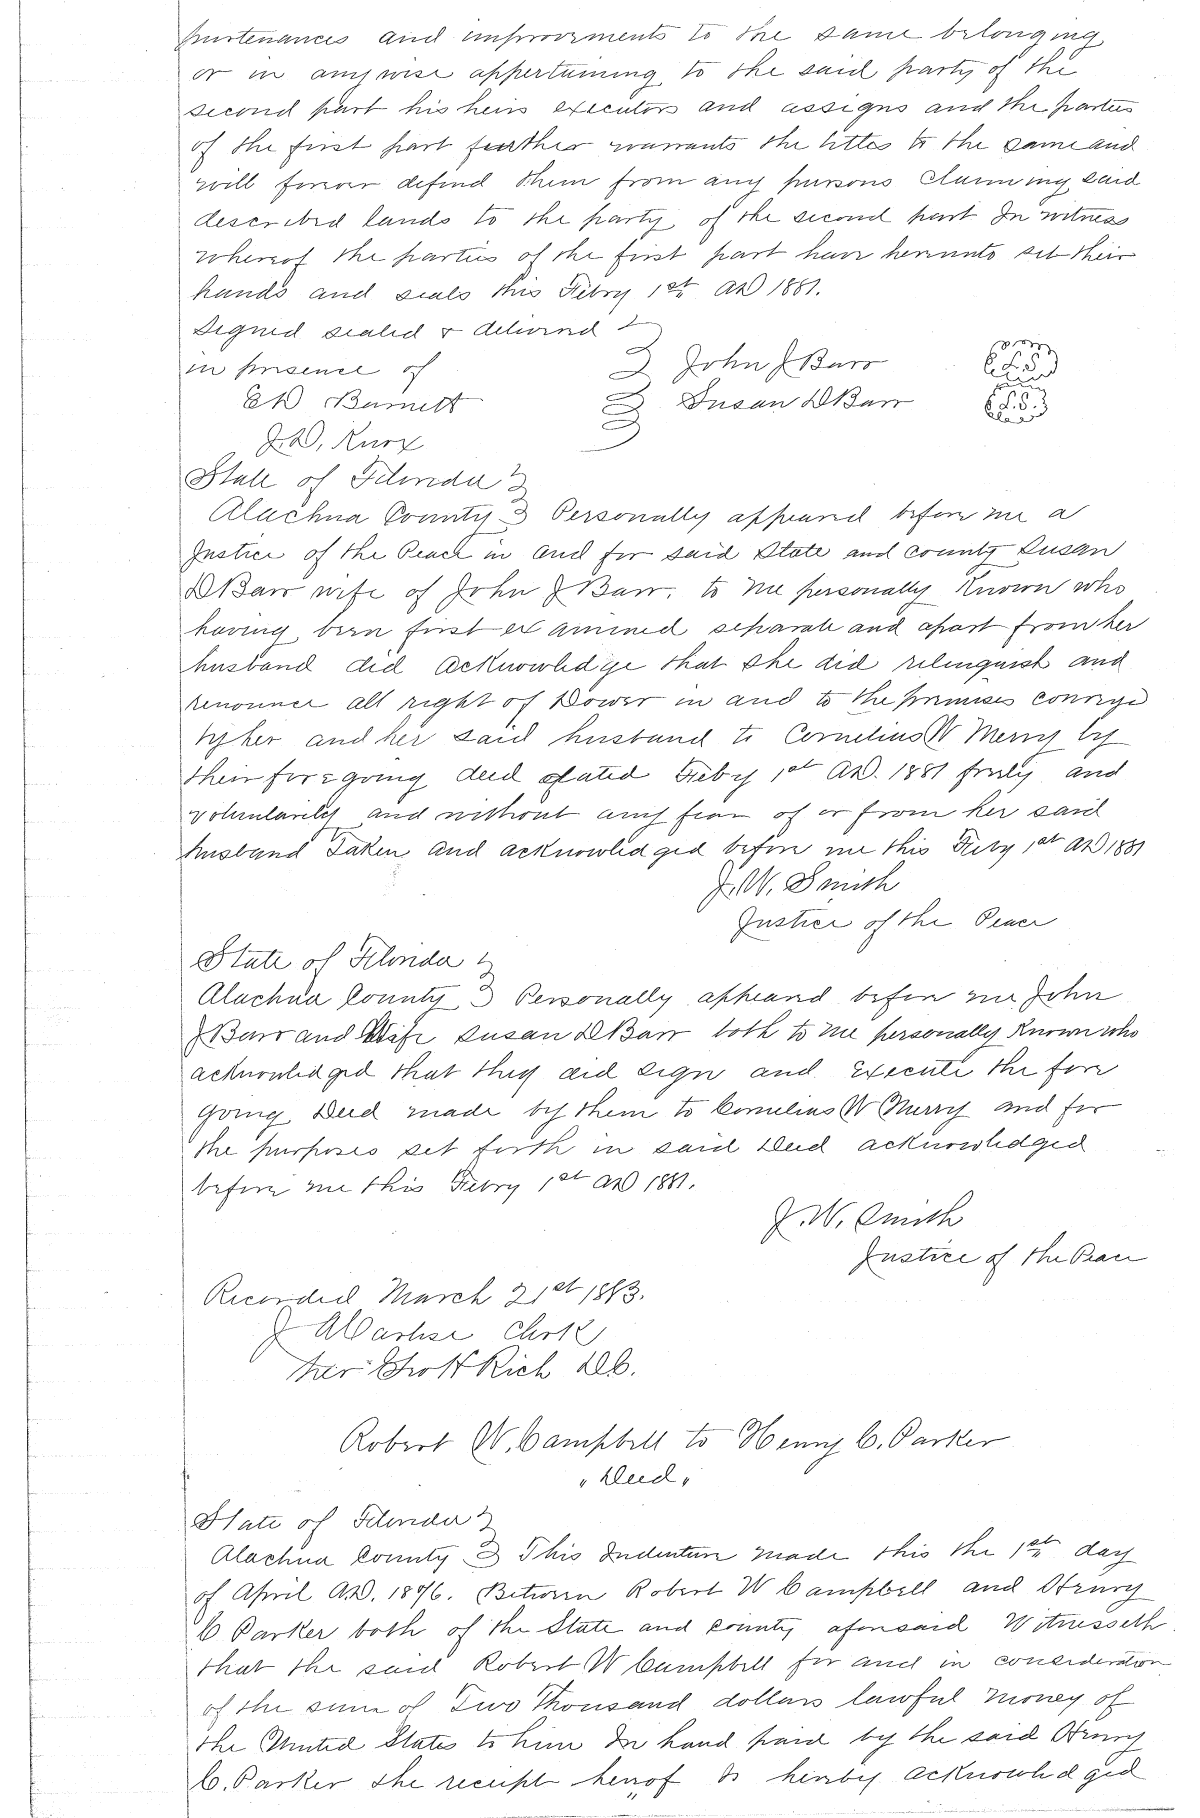 purtenances and improvements to the same belonging
or in anywise appertaining to the said party of the
second part his heirs executors and assigns and the parties
of the first part further warrants the titles to the same and
will forever defend them from any persons claiming said
described lands to the party of the second part In witness
whereof the parties of the first part have hereunto set their
hands and seals this Febry 1st AD 1881.
Signed sealed & delivered
in presence of John J Barr L.S.
Barnett Susan D Barr L.S.
J.W.
State of Florida
Alachua County Personally appeared before me a
Justice of the Peace in and for said State and County Susan
D Barr wife of John J Barr. to me personally Known who
having been first examined separate and apart from her
husband did acknowledge that she did relinquish and
renounce all right of Dower in and to the premises conveyed
by her and her said husband to Cornelius W Merry by
their foregoing deed dated Feby 1st AD. 1881 freely and
voluntarily and without any fear of or from her said
husband Taken and acknowledged before me this Feby 1st AD 1881
J.W. Smith
Justice of the Peace
State of Florida
Alachua County Personally appeared before me John
J Barr and Wife Susan D Barr both to me personally Known who
acknowledged that they did sign and Execute the fore
going Deed made by them to Cornelius W Merry and for
the purposes set forth in said Deed acknowledged
before me this Febry 1st AD 1881.
J.W. Smith
Justice of the Peace
Recorded March 21st 1883.
J A Carlisle Clerk
Per Rich D.C.
Robert W. Campbell to Henry C. Parker
"Deed"
State of Florida
Alachua County This Indenture made this the 1st day
of April A.D. 1876. Between Robert W Campbell and Henry
C Parker both of the State and County aforesaid Witnesseth
that the said Robert W Campbell for and in consideration
of the sum of Two Thousand dollars lawful money of
the United States to him In hand paid by the said Henry
C. Parker the receipt hereof is hereby acknowledged